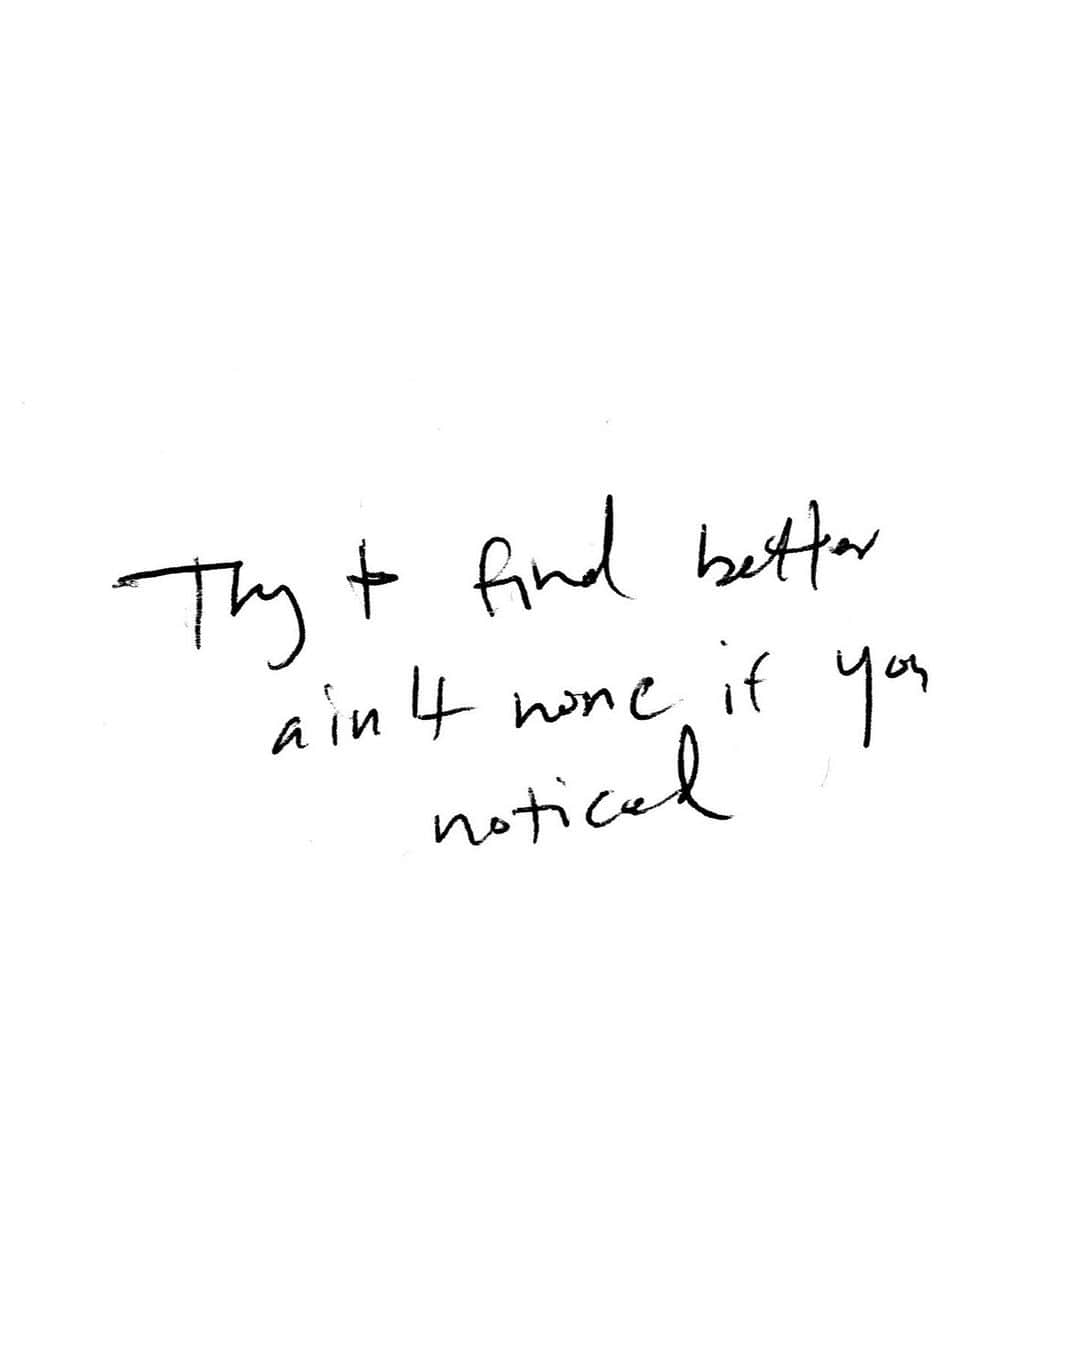 Try to find better
ain't none if you
noticed